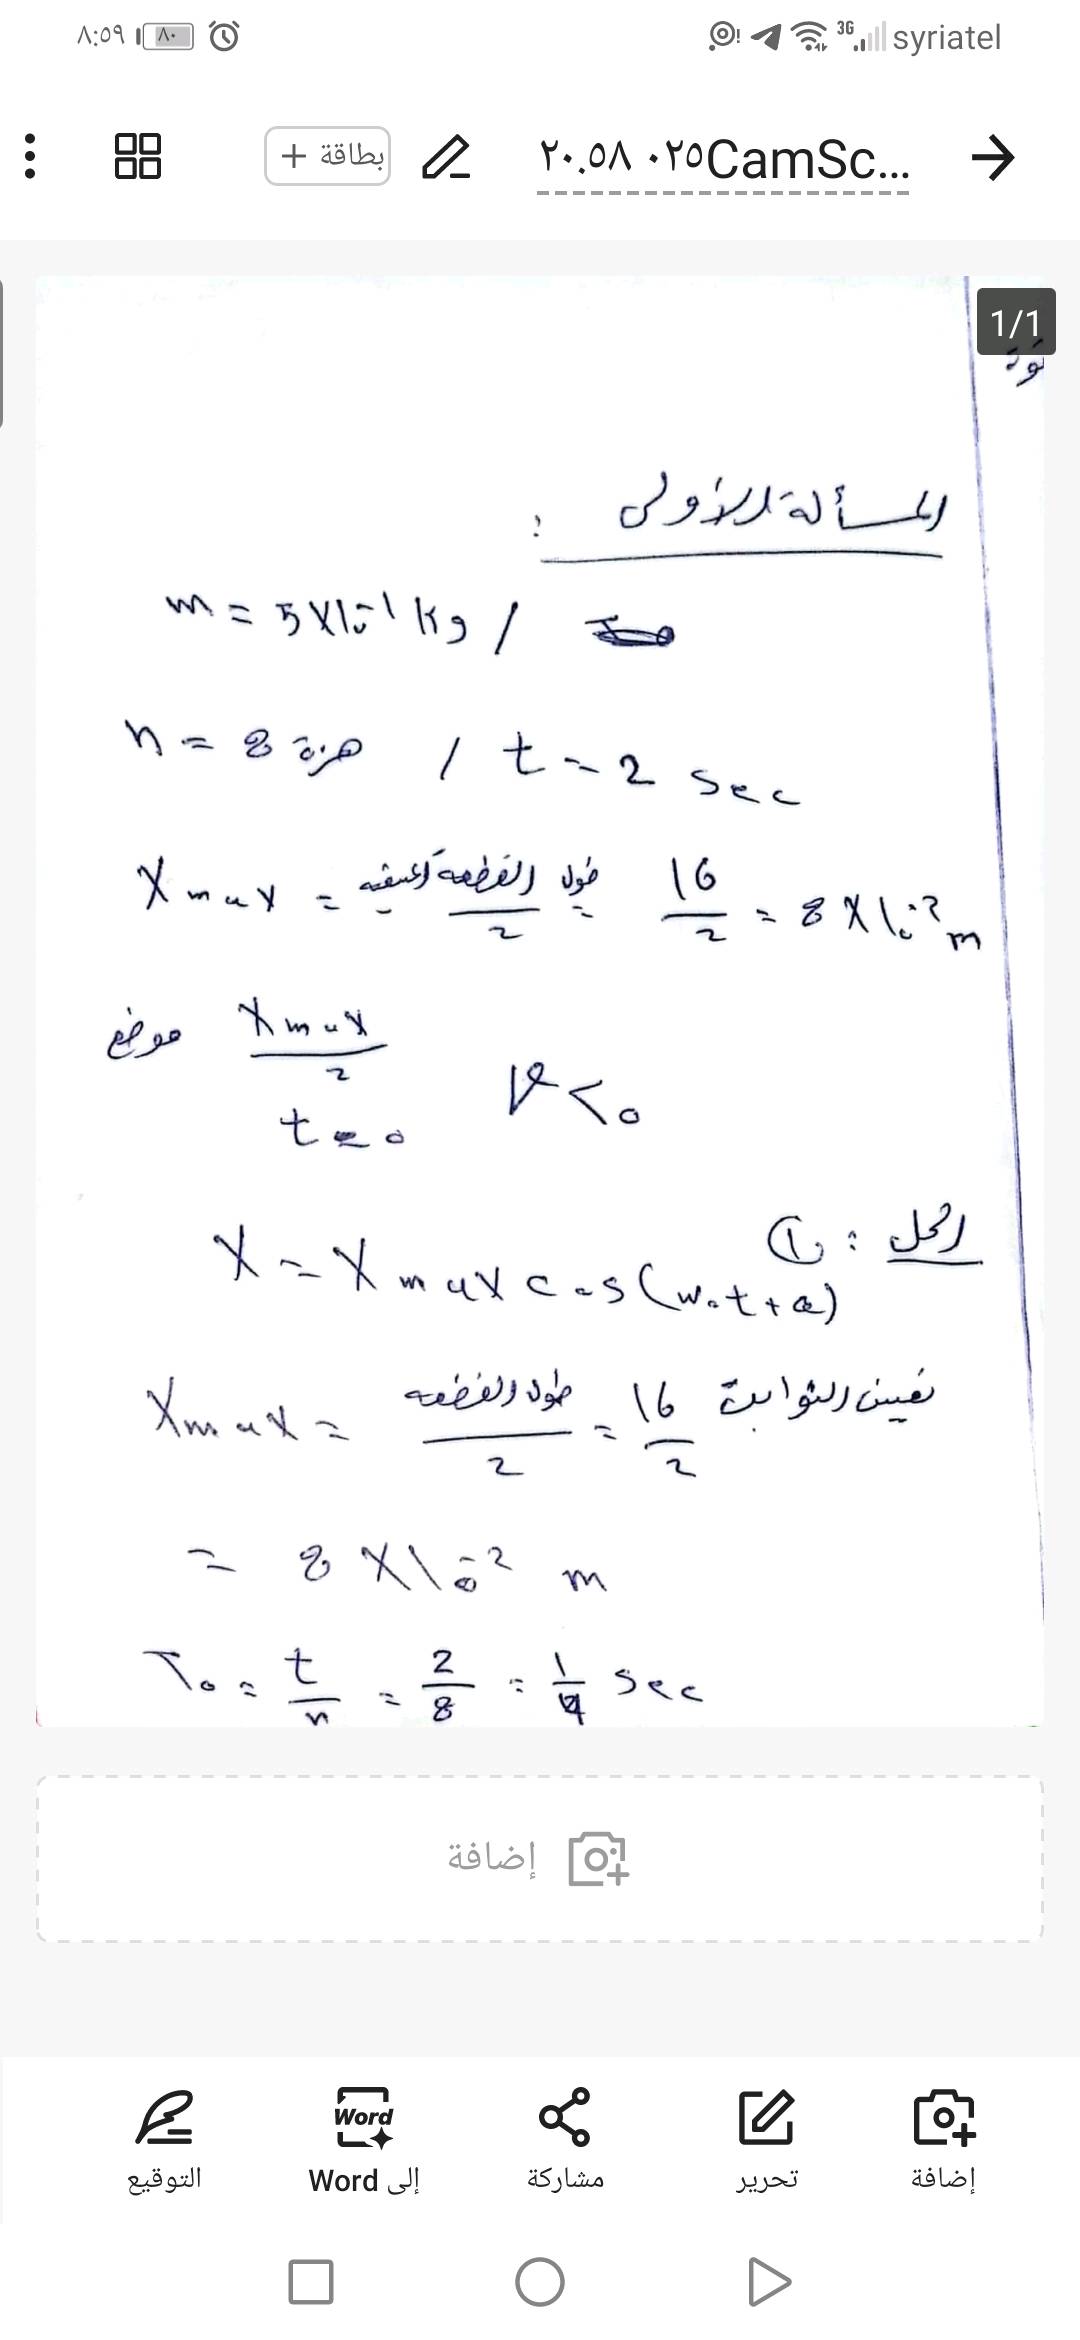 ٨:٥٩ ٨٠ 3G syriatel
بطاقة + ٢٠.٥٨ ٠٢٥CamSc...
1/1
المسألة الأولى :
m = 5 x 10⁻¹ kg /
n = 8 هزة / t = 2 sec
X max = طول القطعة المستقيمة / 2 = 16/2 = 8 x 10⁻² m
موضع X max / 2
t = 0 v < 0
الحل : ①
X = X max cos(ω₀t + φ)
تعيين الثوابت X max = طول القطعة / 2 = 16/2
= 8 x 10⁻² m
T₀ = t/n = 2/8 = 1/4 sec
إضافة
إضافة تحرير مشاركة إلى Word التوقيع